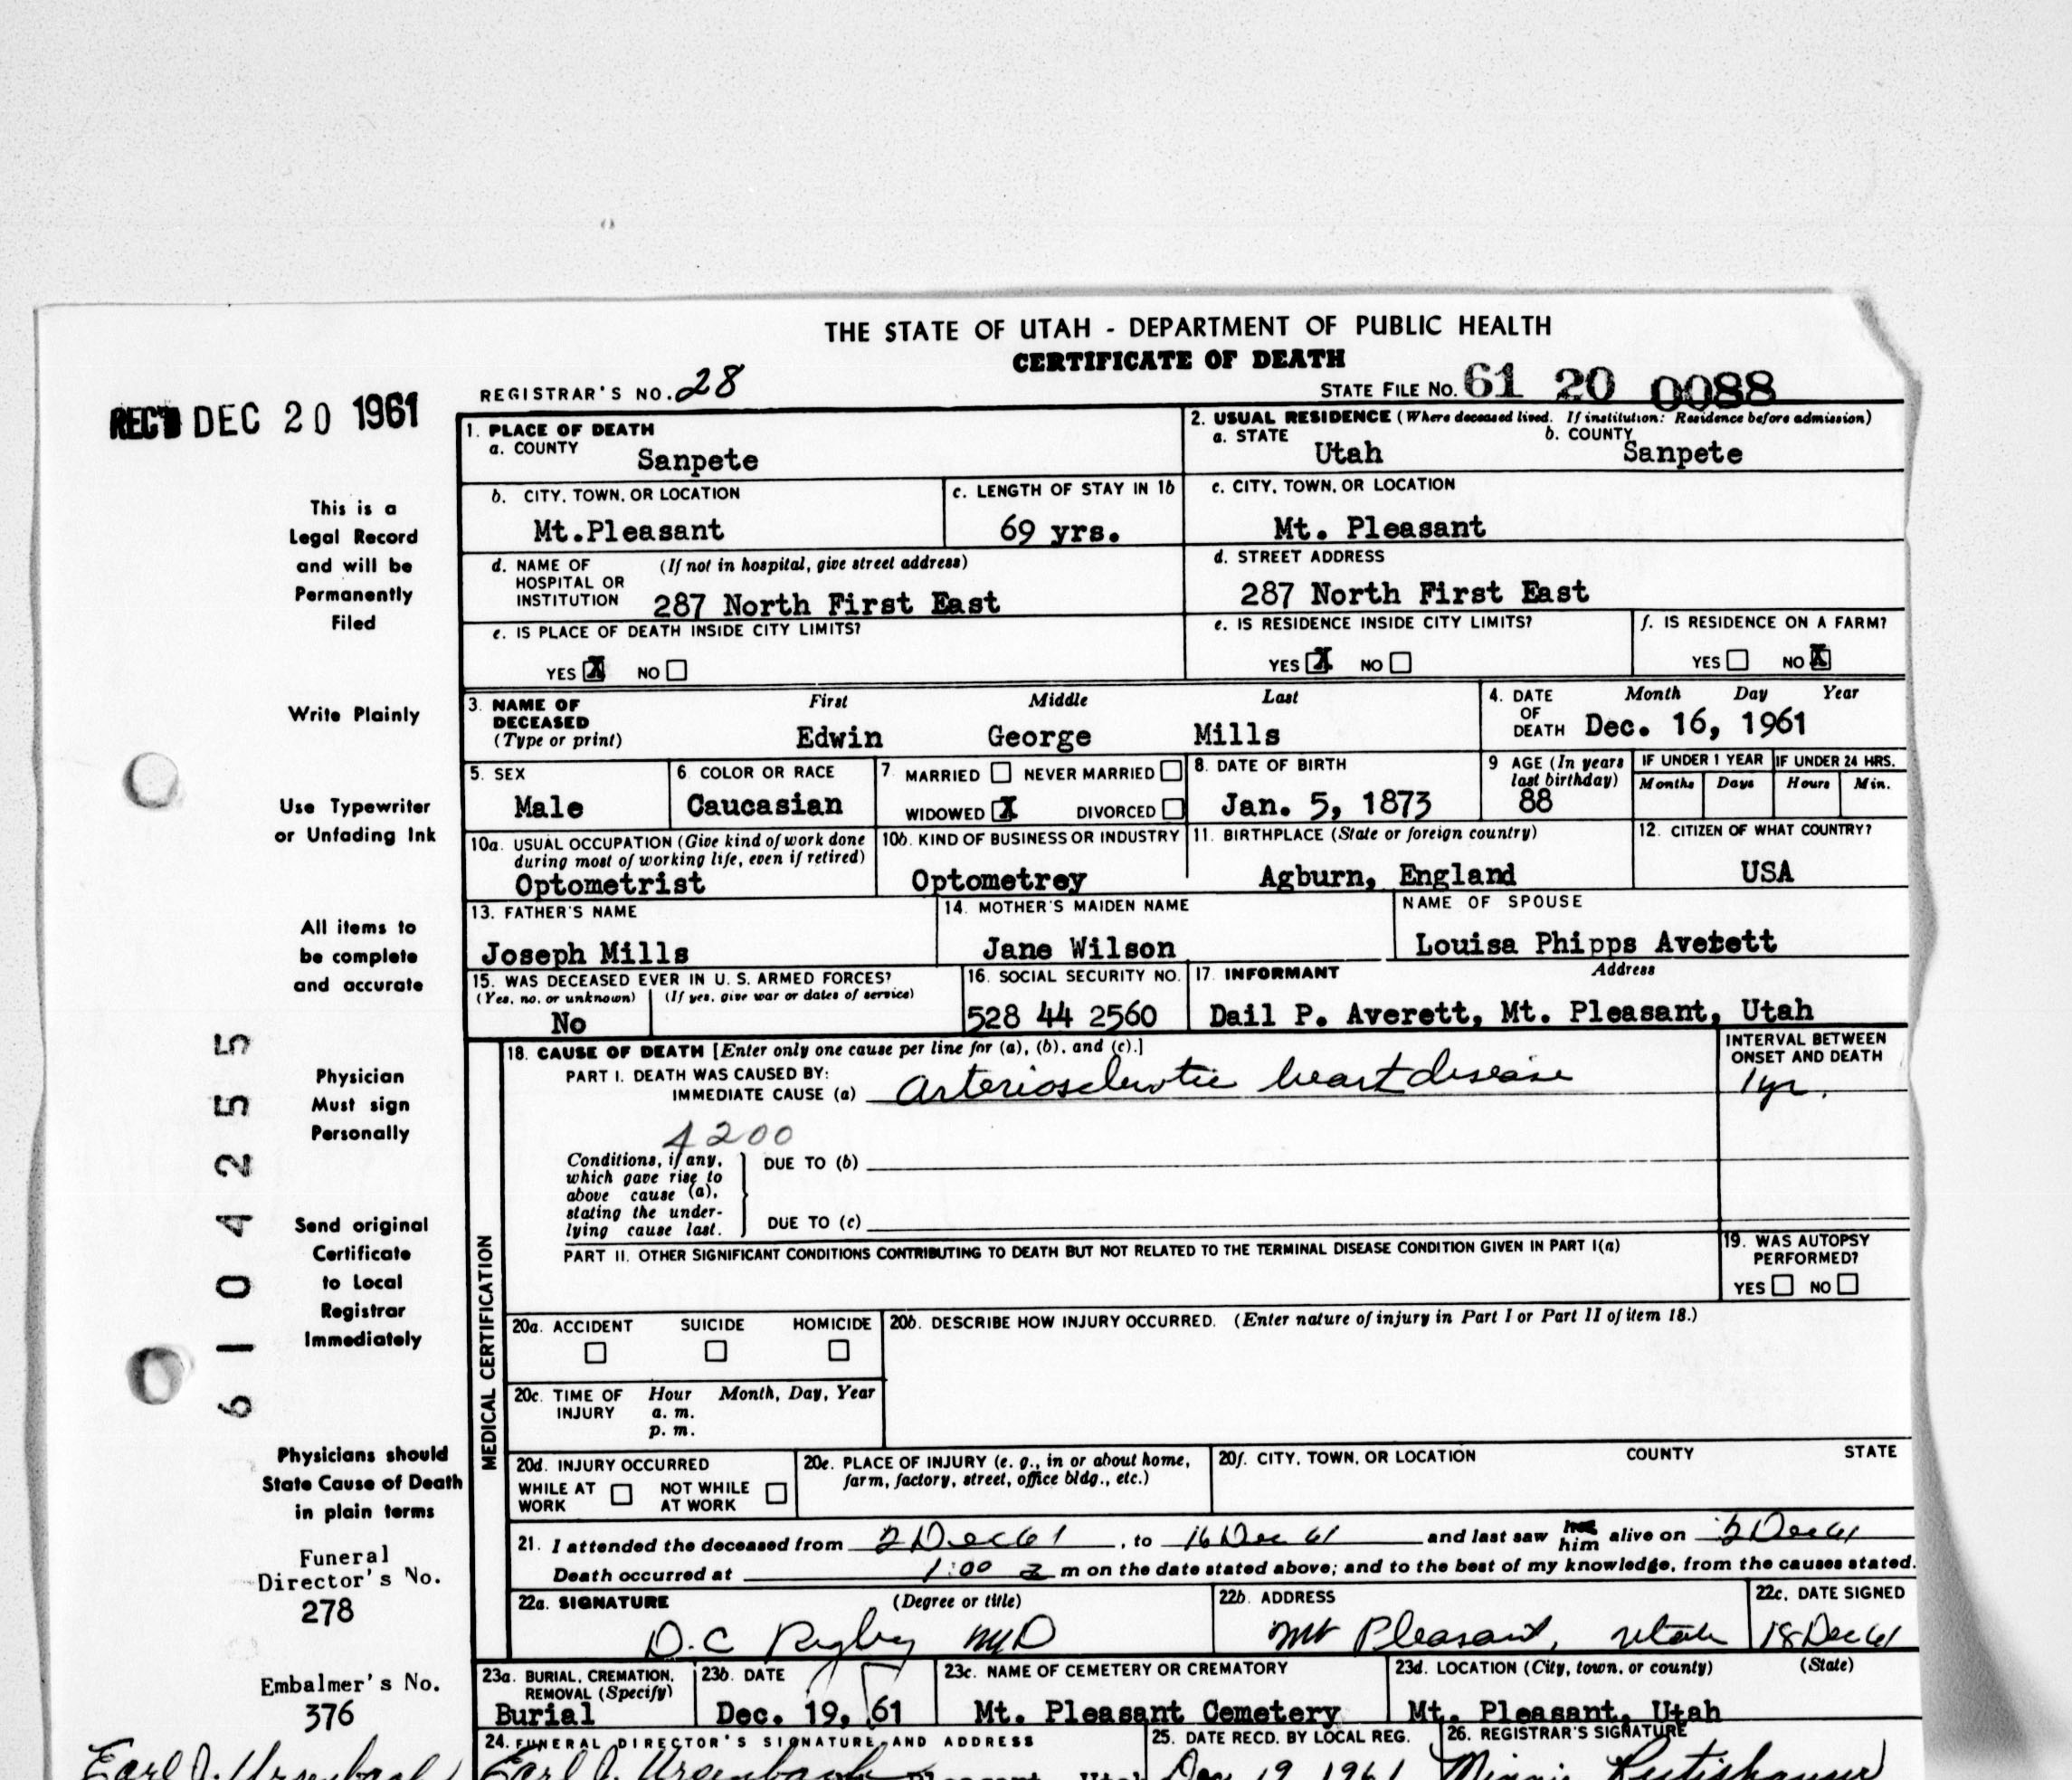 THE STATE OF UTAH - DEPARTMENT OF PUBLIC HEALTH
CERTIFICATE OF DEATH
REGISTRAR'S NO. 28
STATE FILE NO. 61 20 0088
REC'D DEC 20 1961
This is a
Legal Record
and will be
Permanently
Filed
Write Plainly
Use Typewriter
or Unfading Ink
All items to
be complete
and accurate
Physician
Must sign
Personally
Send original
Certificate
to Local
Registrar
Immediately
Physicians should
State Cause of Death
in plain terms
Funeral
Director's No.
278
Embalmer's No.
376
61042555
1. PLACE OF DEATH
a. COUNTY
Sanpete
2. USUAL RESIDENCE (Where deceased lived. If institution: Residence before admission)
a. STATE
Utah
b. COUNTY
Sanpete
b. CITY, TOWN, OR LOCATION
Mt.Pleasant
c. LENGTH OF STAY IN 1b
69 yrs.
c. CITY, TOWN, OR LOCATION
Mt. Pleasant
d. NAME OF (If not in hospital, give street address)
HOSPITAL OR
INSTITUTION 287 North First East
d. STREET ADDRESS
287 North First East
e. IS PLACE OF DEATH INSIDE CITY LIMITS?
YES X NO
e. IS RESIDENCE INSIDE CITY LIMITS?
YES X NO
f. IS RESIDENCE ON A FARM?
YES NO X
3. NAME OF
DECEASED
(Type or print)
First Middle Last
Edwin George Mills
4. DATE
OF
DEATH
Month Day Year
Dec. 16, 1961
5. SEX
Male
6. COLOR OR RACE
Caucasian
7. MARRIED NEVER MARRIED
WIDOWED X DIVORCED
8. DATE OF BIRTH
Jan. 5, 1873
9 AGE (In years
last birthday)
88
IF UNDER 1 YEAR
Months Days
IF UNDER 24 HRS.
Hours Min.
10a. USUAL OCCUPATION (Give kind of work done
during most of working life, even if retired)
Optometrist
10b. KIND OF BUSINESS OR INDUSTRY
Optometrey
11. BIRTHPLACE (State or foreign country)
Agburn, England
12. CITIZEN OF WHAT COUNTRY?
USA
13. FATHER'S NAME
Joseph Mills
14. MOTHER'S MAIDEN NAME
Jane Wilson
NAME OF SPOUSE
Louisa Phipps Avetett
15. WAS DECEASED EVER IN U. S. ARMED FORCES?
(Yes, no, or unknown) (If yes, give war or dates of service)
No
16. SOCIAL SECURITY NO.
528 44 2560
17. INFORMANT Address
Dail P. Averett, Mt. Pleasant, Utah
MEDICAL CERTIFICATION
18. CAUSE OF DEATH [Enter only one cause per line for (a), (b), and (c).]
PART I. DEATH WAS CAUSED BY:
IMMEDIATE CAUSE (a) Arteriosclerotic heart disease
INTERVAL BETWEEN
ONSET AND DEATH
1 yr.
4200
Conditions, if any,
which gave rise to
above cause (a),
stating the under-
lying cause last.
DUE TO (b)
DUE TO (c)
PART II. OTHER SIGNIFICANT CONDITIONS CONTRIBUTING TO DEATH BUT NOT RELATED TO THE TERMINAL DISEASE CONDITION GIVEN IN PART I(a)
19. WAS AUTOPSY
PERFORMED?
YES NO
20a. ACCIDENT SUICIDE HOMICIDE
20b. DESCRIBE HOW INJURY OCCURRED. (Enter nature of injury in Part I or Part II of item 18.)
20c. TIME OF Hour Month, Day, Year
INJURY a. m.
p. m.
20d. INJURY OCCURRED
WHILE AT NOT WHILE
WORK AT WORK
20e. PLACE OF INJURY (e. g., in or about home,
farm, factory, street, office bldg., etc.)
20f. CITY, TOWN, OR LOCATION COUNTY STATE
21. I attended the deceased from 2 Dec 61, to 16 Dec 61 and last saw her him alive on Dec 61
Death occurred at 1:00 a m on the date stated above; and to the best of my knowledge, from the causes stated.
22a. SIGNATURE (Degree or title)
D.C Rigby MD
22b. ADDRESS
Mt Pleasant, Utah
22c. DATE SIGNED
18 Dec 61
23a. BURIAL, CREMATION,
REMOVAL (Specify)
Burial
23b. DATE
Dec. 19, 61
23c. NAME OF CEMETERY OR CREMATORY
Mt. Pleasant Cemetery
23d. LOCATION (City, town, or county) (State)
Mt. Pleasant, Utah
24. FUNERAL DIRECTOR'S SIGNATURE AND ADDRESS
Earl J. Ursenbach
Earl J. Ursenbach
25. DATE RECD. BY LOCAL REG.
Dec 19 1961
26. REGISTRAR'S SIGNATURE
Minnie Rutishauser